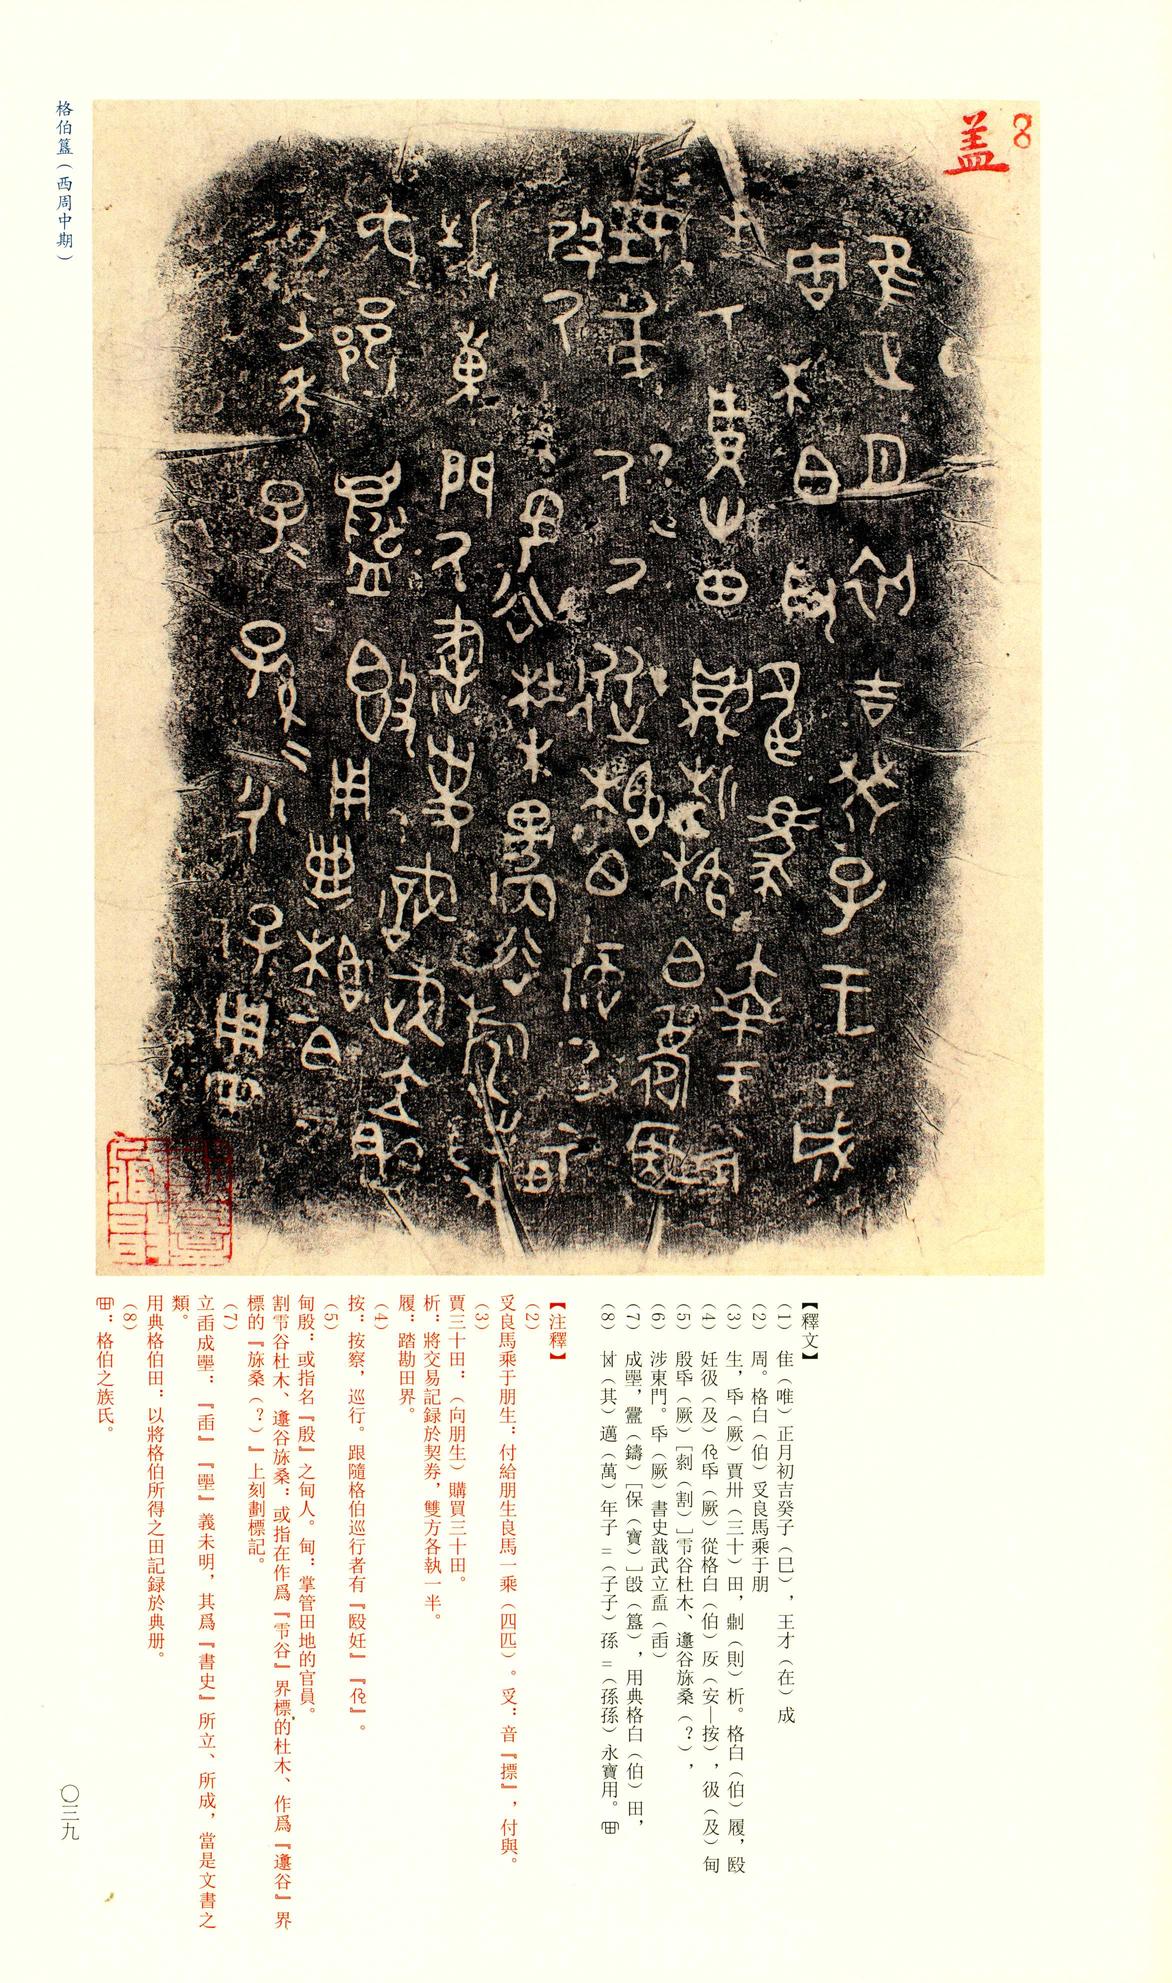 格伯簋（西周中期）
蓋
【釋文】
（1）隹（唯）正月初吉癸子（巳），王才（在）成
（2）周。格白（伯）𠬪良馬乘于朋
（3）生，氒（厥）賈卅（三十）田，㓝（則）析。格白（伯）履，殹
（4）妊彶（及）㐌氒（厥）從格白（伯）㚥（安—按），彶（及）甸
（5）殷氒（厥）［㓞（割）］雩谷杜木、邍谷旅桑（？），
（6）涉東門。氒（厥）書史戠武立盾（臿）
（7）成壐，䵼（鑄）［保（寶）］𣪘（簋），用典格白（伯）田，
（8）㠱（其）邁（萬）年子＝（子子）孫＝（孫孫）永寶用。
【注釋】
（2）
𠬪良馬乘于朋生：付給朋生良馬一乘（四匹）。𠬪：音『摽』，付與。
（3）
賈三十田：（向朋生）購買三十田。
析：將交易記録於契券，雙方各執一半。
履：踏勘田界。
（4）
按：按察，巡行。跟隨格伯巡行者有『殹妊』『㐌』。
（5）
甸殷：或指名『殷』之甸人。甸：掌管田地的官員。
割雩谷杜木、邍谷旅桑：或指在作爲『雩谷』界標的杜木、作爲『邍谷』界
標的『旅桑（？）』上刻劃標記。
（7）
立臿成壐：『臿』『壐』義未明，其爲『書史』所立、所成，當是文書之
類。
用典格伯田：以將格伯所得之田記録於典册。
（8）
：格伯之族氏。
〇三九